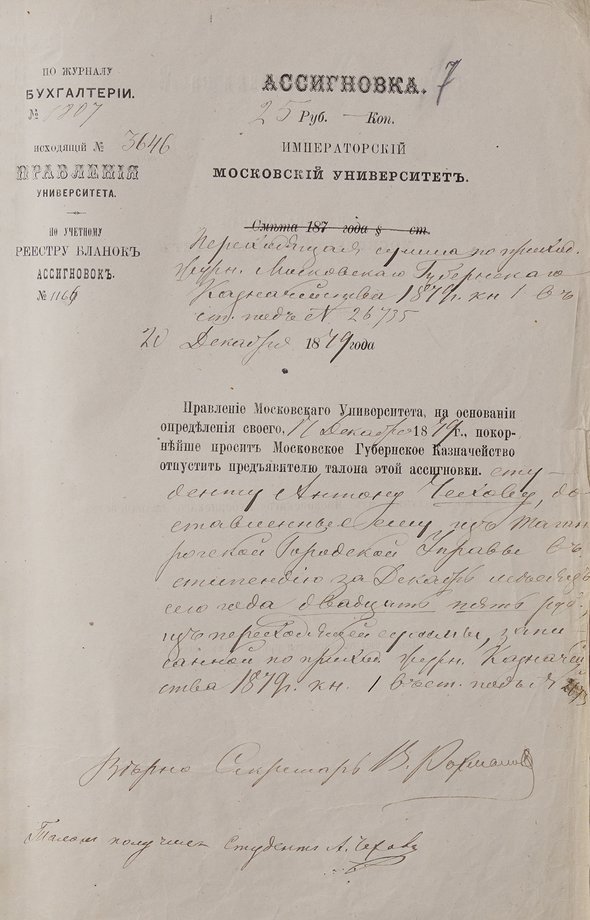 ПО ЖУРНАЛУ
БУХГАЛТЕРІИ.
№ 1807
исходящій № 3646
ПРАВЛЕНІЯ
УНИВЕРСИТЕТА.
ПО УЧЕТНОМУ
РЕЕСТРУ БЛАНОКЪ
АССИГНОВОКЪ.
№ 1166
АССИГНОВКА. 7
25 Руб. — Коп.
ИМПЕРАТОРСКІЙ
МОСКОВСКІЙ УНИВЕРСИТЕТЪ.
Смѣта 187 года § ст.
Переходящая сумма по приход.
журн. Московскаго Губернскаго
Казначейства 1879 г. кн 1 въ
ст. подъ № 26735
20 Декабря 1879 года
Правленіе Московскаго Университета, на основаніи
опредѣленія своего, 17 Декабря 1879 г., покор-
нѣйше проситъ Московское Губернское Казначейство
отпустить предъявителю талона этой ассигновки. сту-
денту Антону Чехову, до-
ставленные ему изъ Таган-
рогской Городской Управы въ
стипендію за Декабрь мѣсяцъ
сего года двадцать пять руб.,
изъ переходящей суммы, запи-
санной по приход. журн. Казначей-
ства 1879 г. кн. 1 въ ст. подъ №
Вѣрно Секретарь В.
Талонъ получилъ Студентъ А. Чеховъ